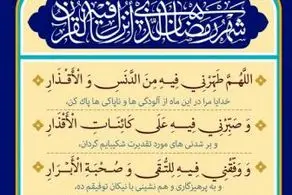 شهر رمضان الذی انزل فیه القرآن
اللَّهُمَّ طَهِّرْنِي فِيهِ مِنَ الدَّنَسِ وَ الْأَقْذَارِ
خدایا مرا در این ماه از آلودگی ها و ناپاکی ها پاک کن،
وَ صَبِّرْنِي فِيهِ عَلَى كَائِنَاتِ الْأَقْدَارِ
و بر شدنی های مورد تقدیرت شکیبایم گردان،
وَ وَفِّقْنِي فِيهِ لِلتُّقَى وَ صُحْبَةِ الْأَبْرَارِ
و به پرهیزکاری و هم نشینی با نیکان توفیقم ده،